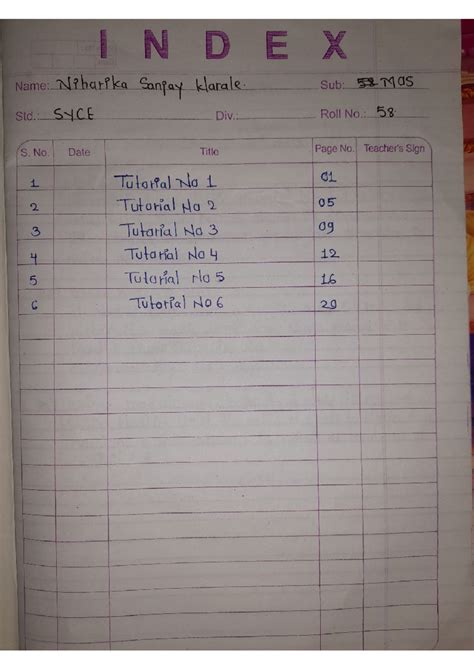 INDEX
Name: Niharika Sanjay Klarale. Sub: 58 MOS
Std.: SYCE Div.: Roll No.: 58
S. No. Date Title Page No. Teacher's Sign
1 Tutorial No 1 01
2 Tutorial No 2 05
3 Tutorial No 3 09
4 Tutorial No 4 12
5 Tutorial No 5 16
6 Tutorial No 6 20